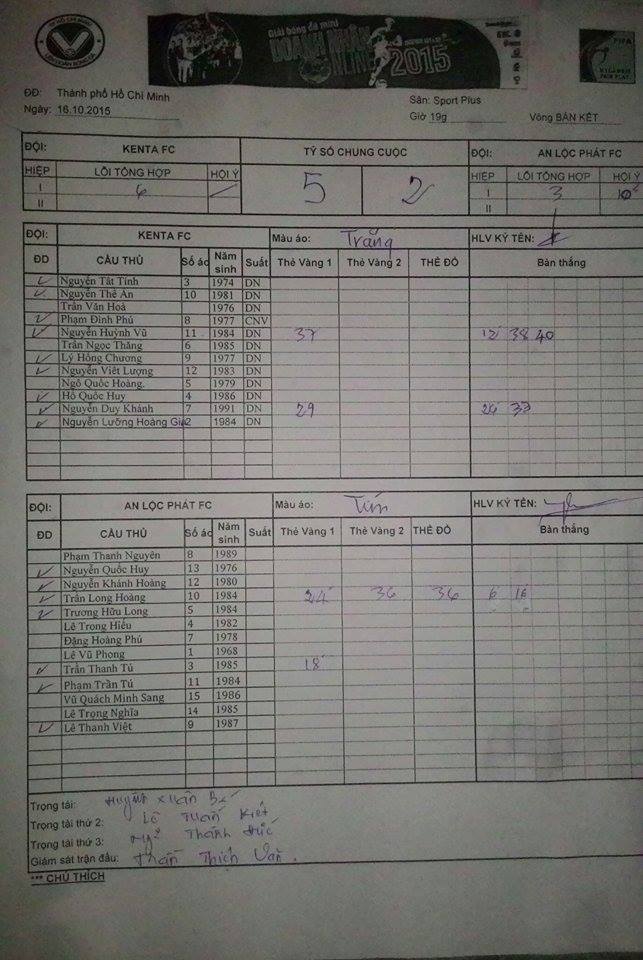 TP HỒ CHÍ MINH
LIÊN ĐOÀN BÓNG ĐÁ
Giải bóng đá mini
DOANH NHÂN
ONLINE
2015
FIFA
FAIR PLAY
ĐĐ: Thành phố Hồ Chí Minh
Ngày: 16.10.2015
Sân: Sport Plus
Giờ 19g Vòng BÁN KẾT
ĐỘI: KENTA FC TỶ SỐ CHUNG CUỘC ĐỘI: AN LỘC PHÁT FC
HIỆP LỖI TỔNG HỢP HỘI Ý 5 2 HIỆP LỖI TỔNG HỢP HỘI Ý
I 6 I 3
II II
ĐỘI: KENTA FC Màu áo: Trắng HLV KÝ TÊN:
ĐD CẦU THỦ Số áo Năm sinh Suất Thẻ Vàng 1 Thẻ Vàng 2 THẺ ĐỎ Bàn thắng
Nguyễn Tất Tính 3 1974 DN
Nguyễn Thế An 10 1981 DN
Trần Văn Hoà 1976 DN
Phạm Đình Phú 8 1977 CNV
Nguyễn Huỳnh Vũ 11 1984 DN 37 12 38 40
Trần Ngọc Thăng 6 1985 DN
Lý Hồng Chương 9 1977 DN
Nguyễn Viết Lượng 12 1983 DN
Ngô Quốc Hoàng. 5 1979 DN
Hồ Quốc Huy 4 1986 DN
Nguyễn Duy Khánh 7 1991 DN 29
Nguyễn Lưỡng Hoàng Gia 2 1984 DN
ĐỘI: AN LỘC PHÁT FC Màu áo: Tím HLV KÝ TÊN:
ĐD CẦU THỦ Số áo Năm sinh Suất Thẻ Vàng 1 Thẻ Vàng 2 THẺ ĐỎ Bàn thắng
Phạm Thanh Nguyên 8 1989
Nguyễn Quốc Huy 13 1976
Nguyễn Khánh Hoàng 12 1980
Trần Long Hoàng 10 1984 24 36 36 6 16
Trương Hữu Long 5 1984
Lê Trong Hiếu 4 1982
Đặng Hoàng Phú 7 1978
Lê Vũ Phong 1 1968
Trần Thanh Tú 3 1985 18
Phạm Trần Tú 11 1984
Vũ Quách Minh Sang 15 1986
Lê Trọng Nghĩa 14 1985
Lê Thanh Việt 9 1987
Trọng tài: Huỳnh Xuân
Trọng tài thứ 2: Lê Tuấn Kiệt
Trọng tài thứ 3: Thành Đức
Giám sát trận đấu: Thân Thịch Vân.
*** CHÚ THÍCH